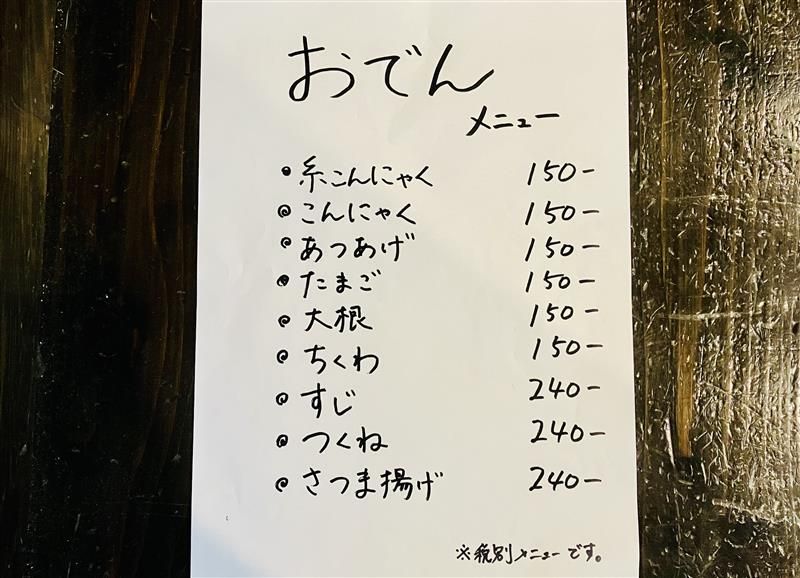 おでん
メニュー
・糸こんにゃく 150-
・こんにゃく 150-
・あつあげ 150-
・たまご 150-
・大根 150-
・ちくわ 150-
・すじ 240-
・つくね 240-
・さつま揚げ 240-
※税別メニューです。